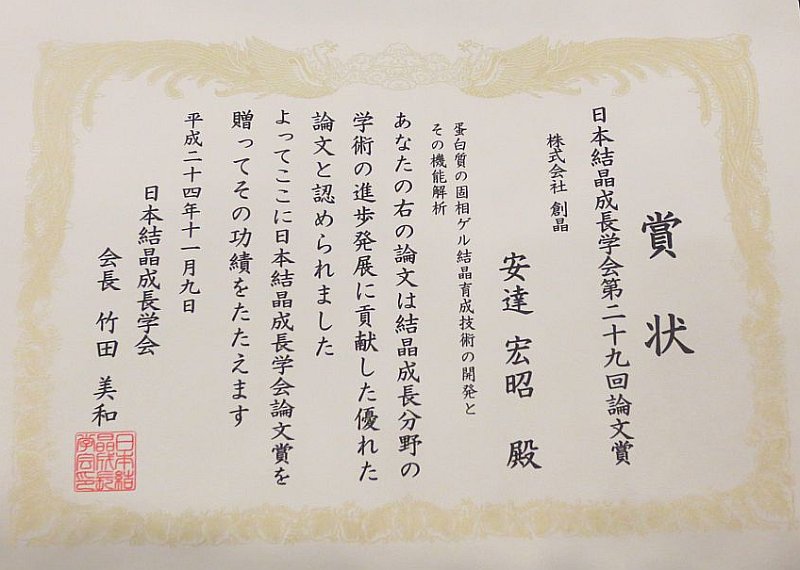 賞状
日本結晶成長学会第二十九回論文賞
株式会社 創晶
安達 宏昭 殿
蛋白質の固相ゲル結晶育成技術の開発と
その機能解析
あなたの右の論文は結晶成長分野の
学術の進歩発展に貢献した優れた
論文と認められました
よってここに日本結晶成長学会論文賞を
贈ってその功績をたたえます
平成二十四年十一月九日
日本結晶成長学会
会長 竹田 美和
日本結
晶成長
学会印